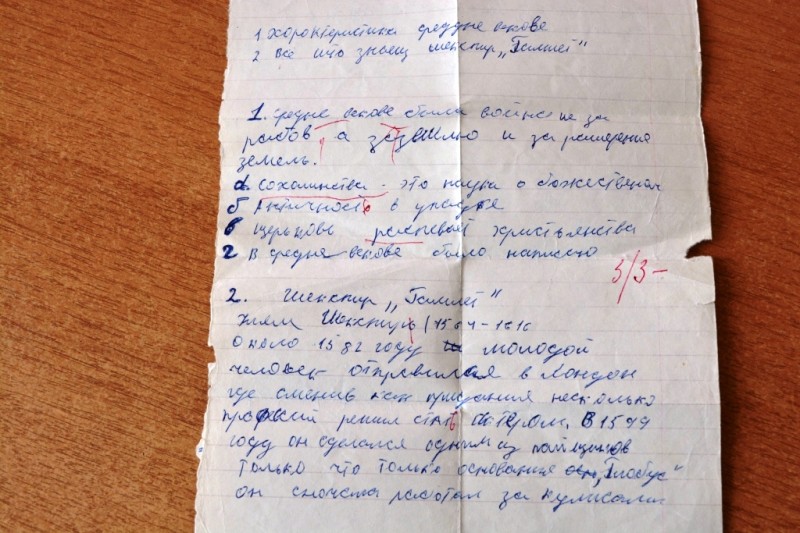 1 Характеристика средне векове
2 Все что знаеш шекспир „Гамлет"
1. средне векове были войны не за
рабов а за землю и за расшедения
земель.
а - это наука о божественом
б Античность в упадке
в церьковь христьянства
г в средне векове было написано
3/3-
2. Шекспир „Гамлет"
Шекспиръ 1564-1616
около 1582 году молодой
человек отправился в Лондон
где сменив как придания несколько
професий решил стать актером. В 1594
году он сделался одним из помщиков
только что только основания „Глобус"
он сначста работал за кулисами